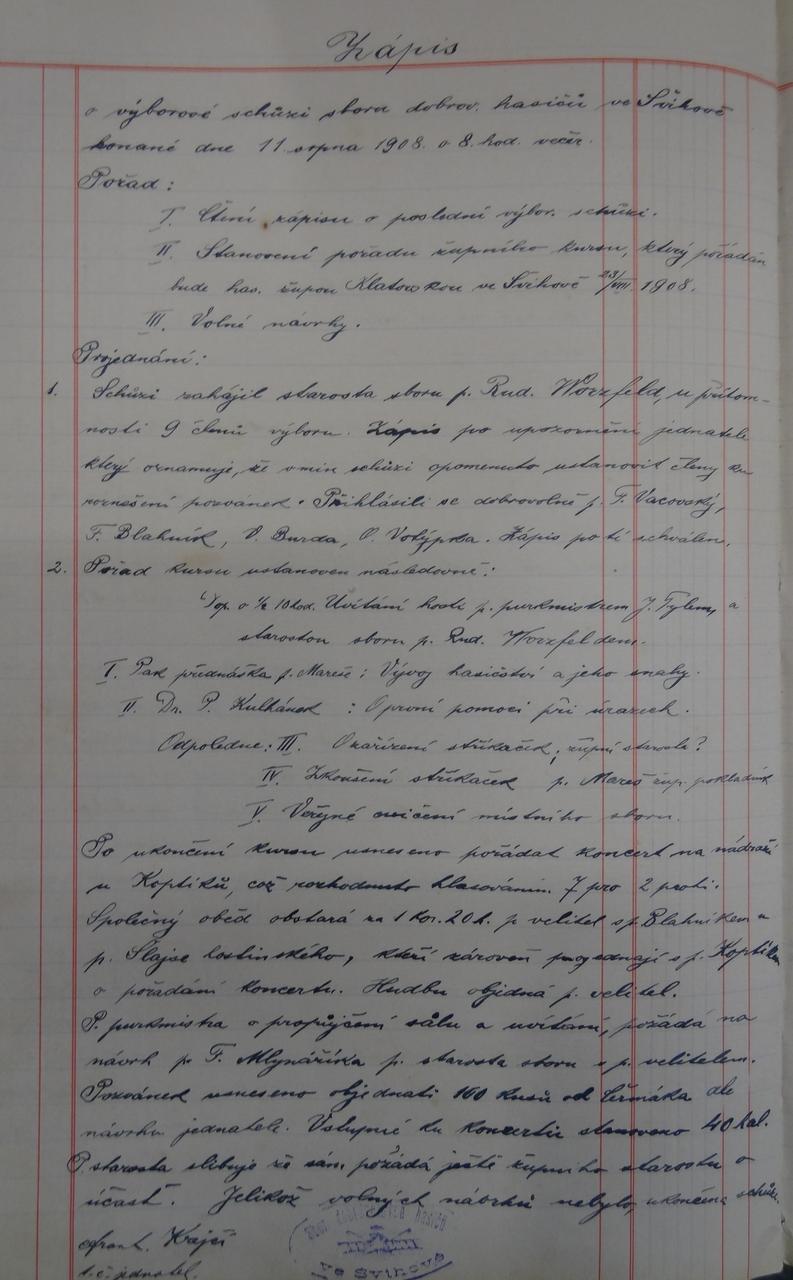 Zápis
o výborové schůzi sboru dobrov. hasičů ve Švihově
konané dne 11. srpna 1908. o 8. hod. večer.
Pořad:
I. Čtení zápisu o poslední výbor. schůzi.
II. Stanovení pořadu župního kursu, který pořádán
bude has. župou Klatowskou ve Švihově 23/VIII. 1908.
III. Volné návrhy.
Projednání:
1. Schůzi zahájil starosta sboru p. Rud. Worzfeld, u přítom-
nosti 9 členů výboru. Zápis po upozornění jednatele
který oznamuje, že v min. schůzi opomenuto ustanovit členy ku
roznešení pozvánek. Přihlásili se dobrovolně p. F. Vacovský,
F. Blahník, V. Burda, O. Votýpka. Zápis po té schválen.
2. Pořad kursu ustanoven následovně:
Dop. o 1/2 10 hod. Uvítání hostí p. purkmistrem J. Tylem, a
starostou sboru p. Rud. Worzfeldem.
I. Pak přednáška p. Mareše: Vývoj hasičství a jeho snahy.
II. Dr. P. Kulhánek : O první pomoci při úrazech.
Odpoledne: III. O zařízení stříkaček, župní starosta?
IV. Zkoušení stříkaček p. Mareš žup. pokladník
V. Veřejné cvičení místního sboru.
Po ukončení kursu usneseno pořádat koncert na nádraží
u Koptíků, což rozhodnuto hlasováním. 7 pro 2 proti.
Společný oběd obstará za 1 kor. 20 h. p velitel s p. Blahníkem u
p. Šlajse hostinského, kteří zároveň projednají s p. Koptíkem
o pořádání koncertu. Hudbu objedná p. velitel.
P. purkmistra o propůjčení sálu a uvítání, požádá na
návrh p. F. Mlynáříka p. starosta sboru s p. velitelem.
Pozvánek usneseno objednati 100 kusů od Čermáka dle
návrhu jednatele. Vstupné ku koncertu stanoveno 40 hal.
P. starosta slibuje že sám požádá ještě župního starostu o
účast. Jelikož volných návrhů nebylo, ukončena schůze.
Frant. Krejčí
t. č. jednatel.
Sbor dobrovolných hasičů
ve Švihově